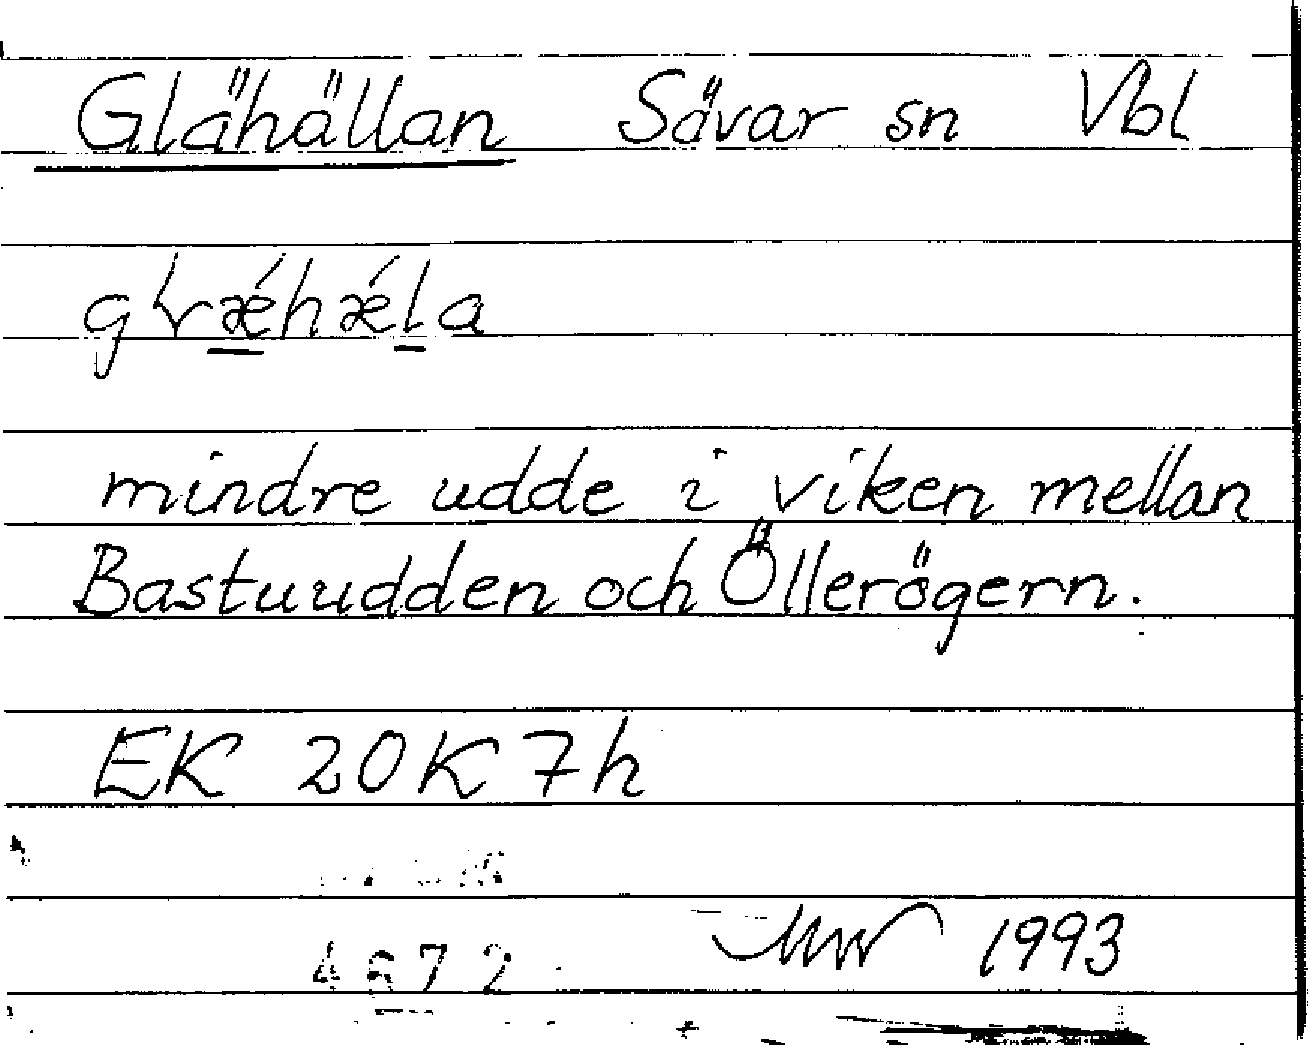 Glähällan Sävar sn Vbl
gɽǽhǽla
mindre udde i viken mellan
Bastuudden och Öllerögern.
EK 20K7h
1993